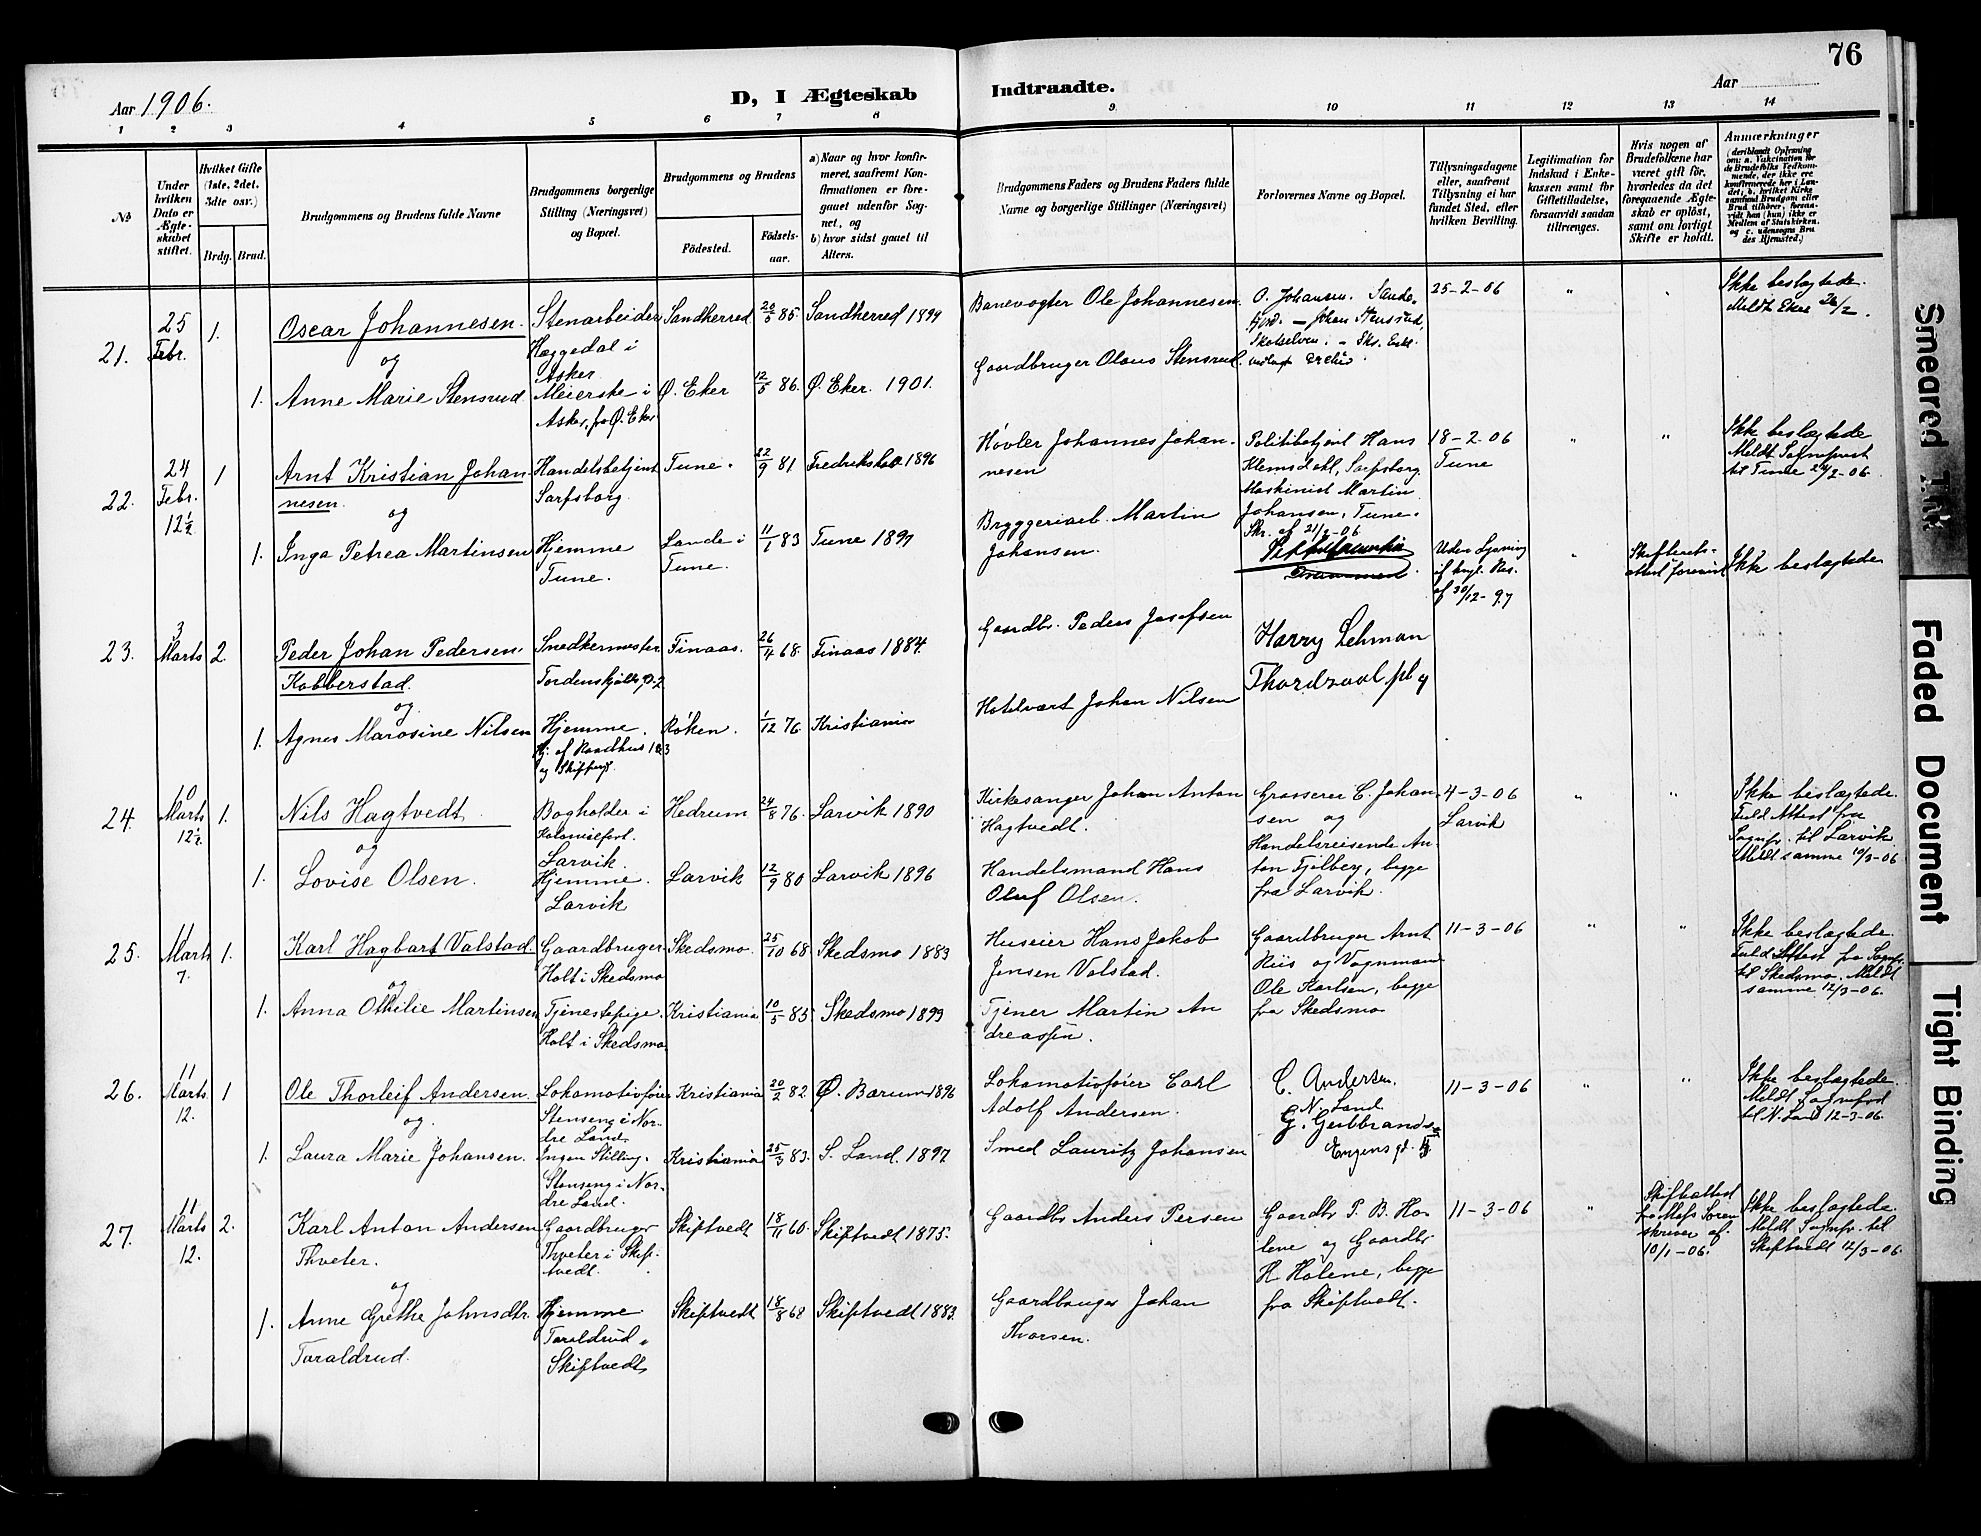 76
Aar 1906.
D, I Ægteskab Indtraadte.
Aar
1 2 3 4 5 6 7 8 9 10 11 12 13 14
№
Under hvilken Dato er Ægteskabet stiftet.
Hvilket Gifte (1ste, 2det, 3die osv.)
Brdg. Brud.
Brudgommens og Brudens fulde Navne
Brudgommens borgerlige Stilling (Næringsvei) og Bopæl.
Brudgommens og Brudens
Fødested.
Fødselsaar.
a) Naar og hvor konfirmeret, saafremt Konfirmationen er foregaaet udenfor Sognet, og
b) hvor sidst gaaet til Alters.
Brudgommens Faders og Brudens Faders fulde Navne og borgerlige Stillinger (Næringsvei)
Forlovernes Navne og Bopæl.
Tillysningsdagene eller, saafremt Tillysning ei har fundet Sted, efter hvilken Bevilling.
Legitimation for Indskud i Enkekassen samt for Giftetilladelse, forsaavidt saadan tiltrænges.
Hvis nogen af Brudefolkene har været gift før, hvorledes da det foregaaende Ægteskab er opløst, samt om lovligt Skifte er holdt.
Anmærkninger
(deriblandt Oplysning om: a. Vakcination for de Brudefolks Vedkommende, der ikke ere konfirmerede her i Landet; b. hvilket Kirkesamfund Brudgom eller Brud tilhører, forsaavidt han (hun) ikke er Medlem af Statskirken, og c. udensogns Brudes Hjemsted.)
21. 25 Febr. 1. Oscar Johannesen. Stenarbeider Sandherred 20/5 85 Sandherred 1899
Hæggedal i Asker
og
1. Anne Marie Stensrud Meierske i Ø. Eker 12/5 86. Ø. Eker. 1901.
Asker, fra Ø. Eker
Banevogter Ole Johannesen. O. Johansen. Sandefjord. — Johan Stensrud, Skotselven.
25-2-06 " " Ikke beslægtede.
Meldt Eker 26/2.
Gaardbruger Olaus Stensrud.
22. 24 Febr. 12½ 1 Arnt Kristian Johannesen. Handelsbetjent Tune. 22/9 81 Fredrikstad 1896
Sarpsborg.
og
1. Inga Petrea Martinsen Hjemme Lande i 11/1 83 Tune 1897
Tune. Tune.
Høvler Johannes Johannesen
Politibetjent Hans Klemsdahl, Sarpsborg
Maskinist Martin Johansen, Tune.
18-2-06 Tune " " Ikke beslægtede
Meldt Sognepræst til Tune 24/2-06.
Bryggeriarb. Martin Johansen. Skr. af 21/2-06
23. 3 Marts 2. Peder Johan Pedersen Kobberstad. Snedkermester Finaas. 26/4 68. Finaas 1884.
Tordenskjolds p. 2
og
1. Agnes Marosine Nilsen Hjemme. Røken. 1/12 76. Kristiania
Gaardbr. Peder Josefsen
Harry Lehman
Uden Lysning if kngl. Res. af 30/12-97 " Ikke beslægtede
Hotelvært Johan Nilsen
24. 10 Marts 12½ 1. Nils Hagtvedt. Bogholder i Hedrum 24/8 76. Larvik 1890
Kolonialforr. Larvik.
og
1. Lovise Olsen. Hjemme. Larvik 12/9 80 Larvik 1896
Larvik
Kirkesanger Johan Anton Hagtvedt.
Grosserer C. Johansen og Handelsreisende Anton Fjelberg, begge fra Larvik.
4-3-06 Larvik " " Ikke beslægtede.
Fuld Attest fra Sognepr. til Larvik
Meldt samme 10/3-06
Handelsmand Hans Oluf Olsen.
25. 11 Marts 7. 1. Karl Hagbart Valstad. Gaardbruger Skedsmo. 25/10 68 Skedsmo 1883
Holt i Skedsmo
og
1. Anna Othilie Martinsen Tjenestepige. Kristiania 10/5 85 Skedsmo 1899
Holt i Skedsmo.
Huseier Hans Jakob Jensen Valstad.
Gaardbruger Arnt Riis og Vognmand Ole Karlsen, begge fra Skedsmo
11-3-06 " " Ikke beslægtede.
Fuld Attest fra Sognpr. til Skedsmo. Meldt samme 12/3-06.
Tjener Martin Andreassen.
26. 11 Marts. 12. 1 Ole Thorleif Andersen. Lokomotivfører Kristiania 20/2 82 Ø. Bærum 1896
Stenseng i Nordre Land.
og
1. Laura Marie Johansen. Ingen Stilling. Kristiania 25/3 83. S. Land. 1897
Stenseng i Nordre Land.
Lokomotivfører Carl Adolf Andersen.
C. Andersen. N. Land.
G. Gulbrandsen
11-3-06 " " Ikke beslægtede.
Meldt Sognepræst til N. Land 12-3-06
Smed Lauritz Johansen
27. 11 Marts 12. 2. Karl Anton Andersen Thveter. Gaardbruger Skiptvedt 18/11 60. Skiptvedt 1875.
Thveter i Skiptvedt.
og
1. Anne Grethe Johnsdtr. Taraldrud. Hjemme Skiptvedt 18/8 68 Skiptvedt 1883.
Taraldrud i Skiptvedt
Gaardbr Anders Persen
Gaardbr P. B. Holene og Gaardbr H Holene, begge fra Skiptvedt.
11-3-06 " Skifteattest fra Moss Sorenskriver af 10/1-06.
Ikke beslægtede.
Meldt Sognpr. til Skiptvedt 12/3-06.
Gaardbruger Johan Thorsen.
Smeared Ink
Faded Document
Tight Binding